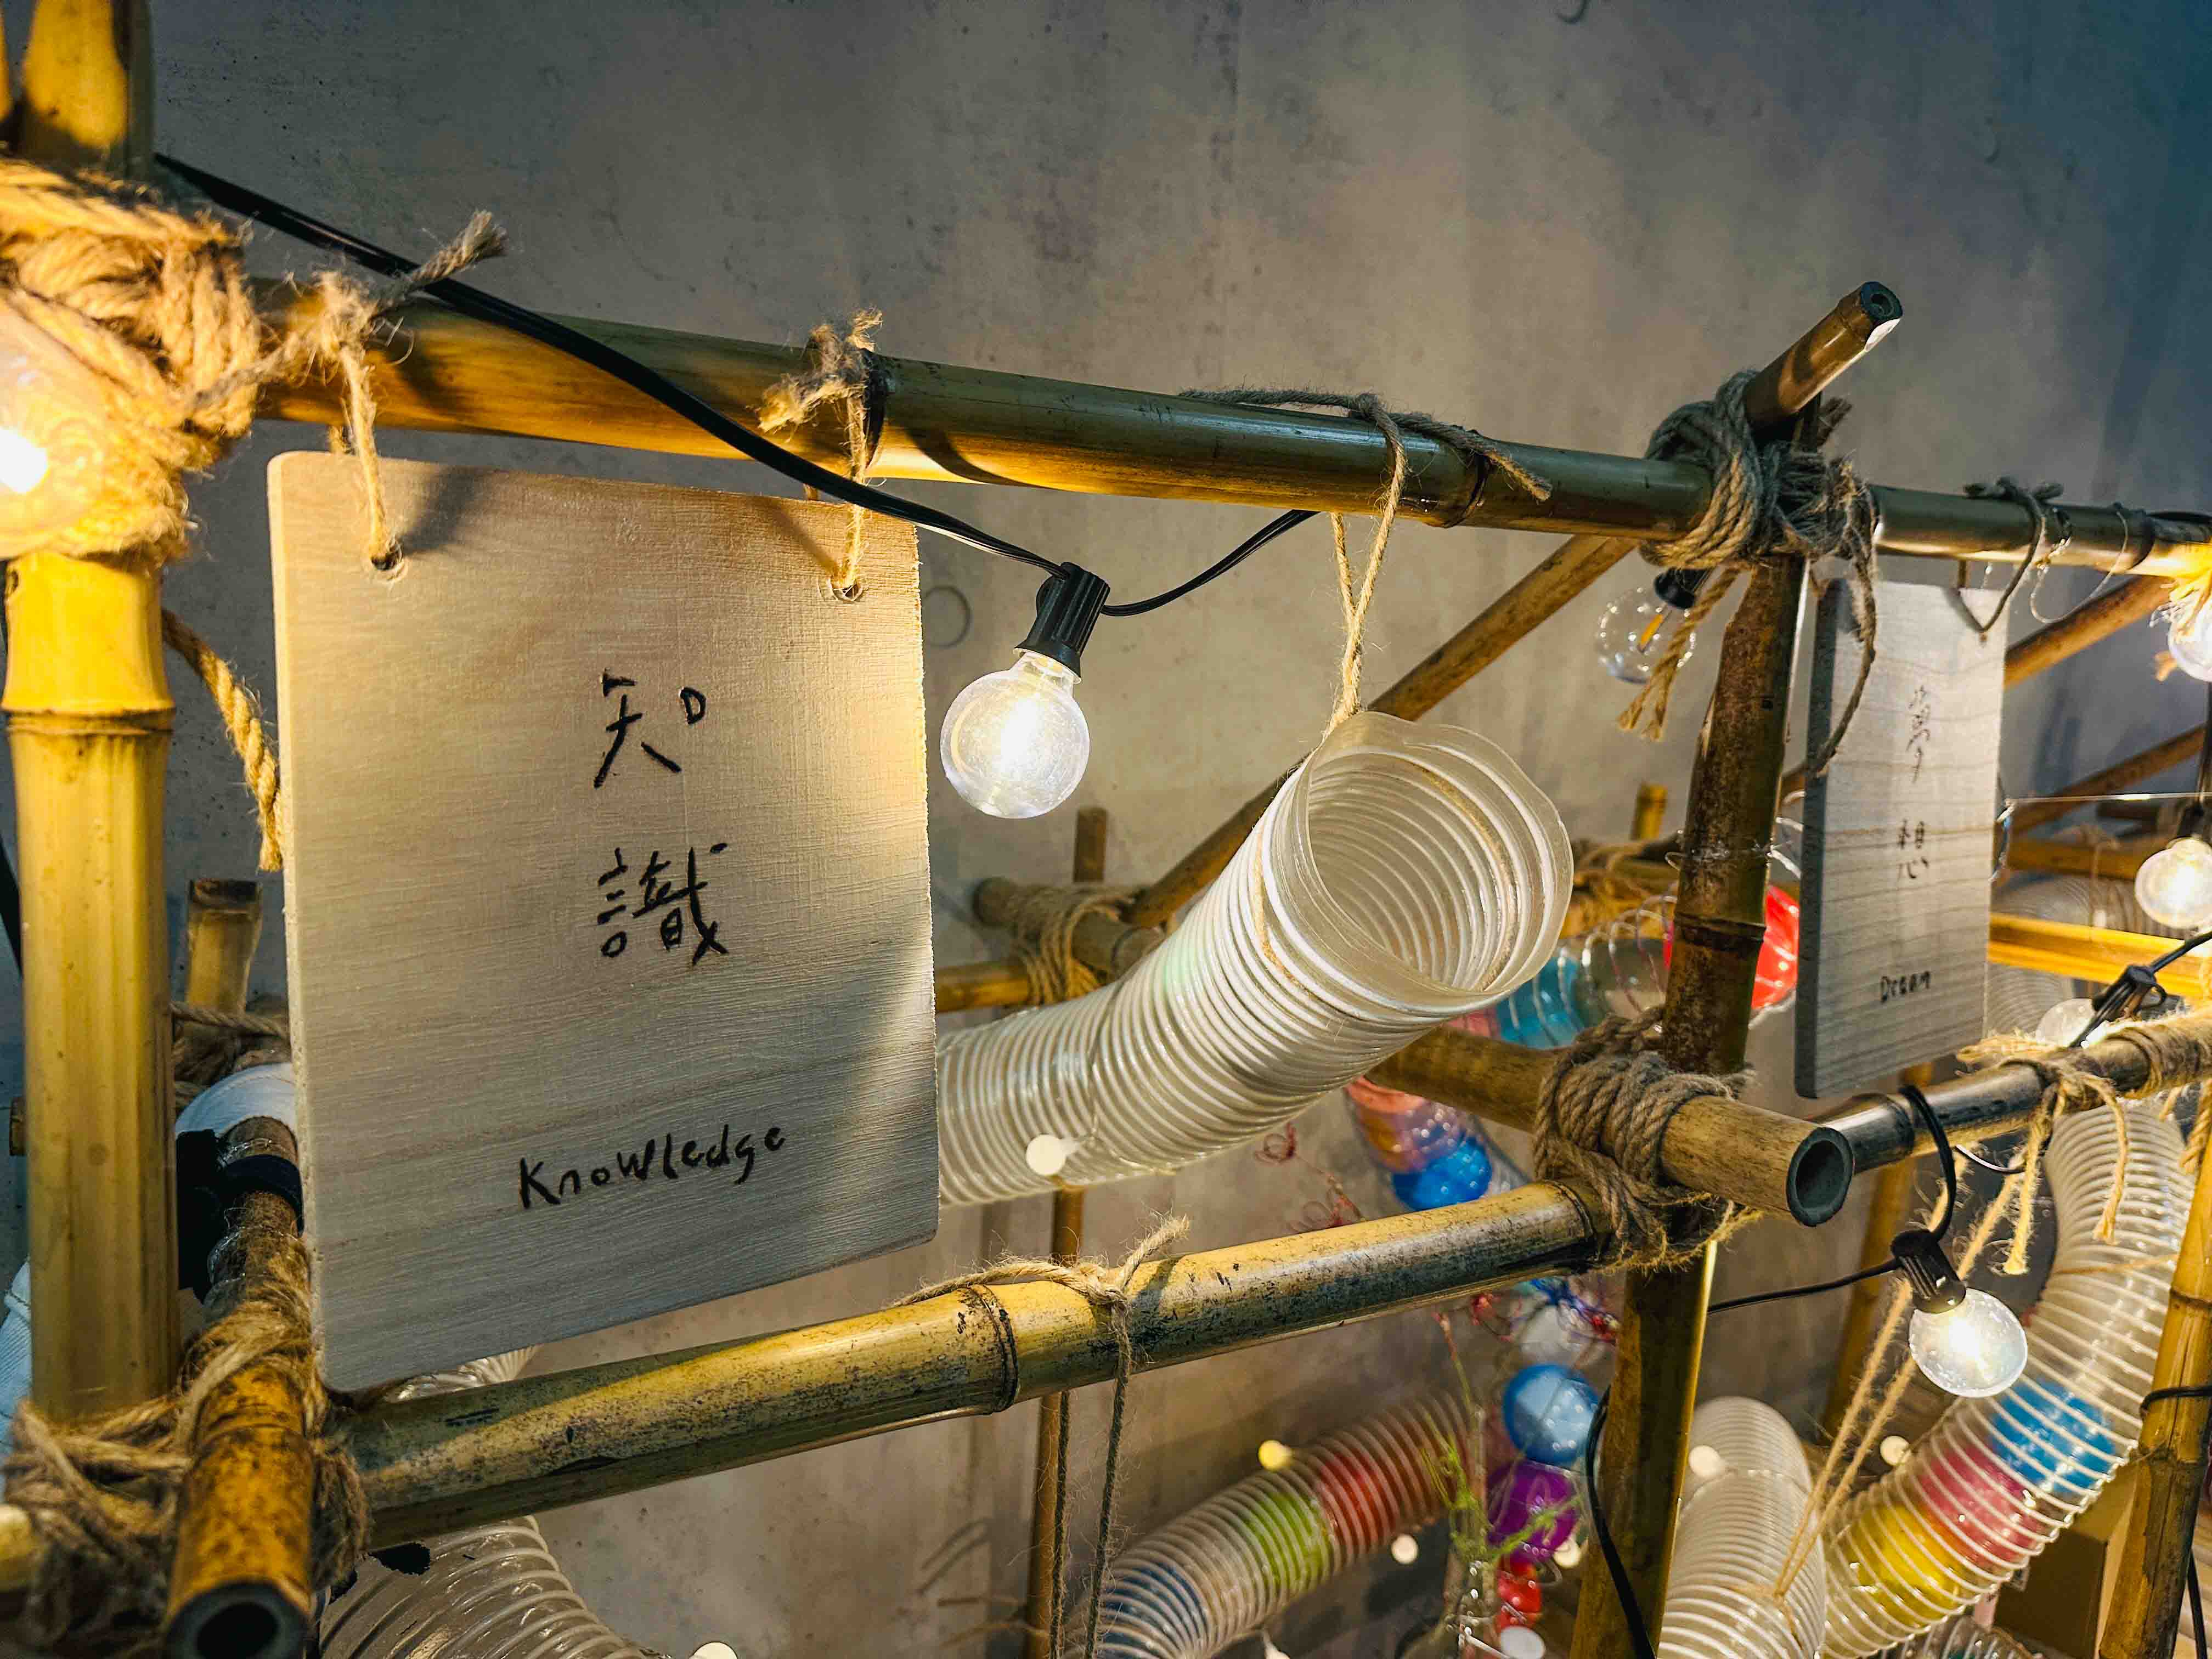 知
識
Knowledge
夢
想
Dream